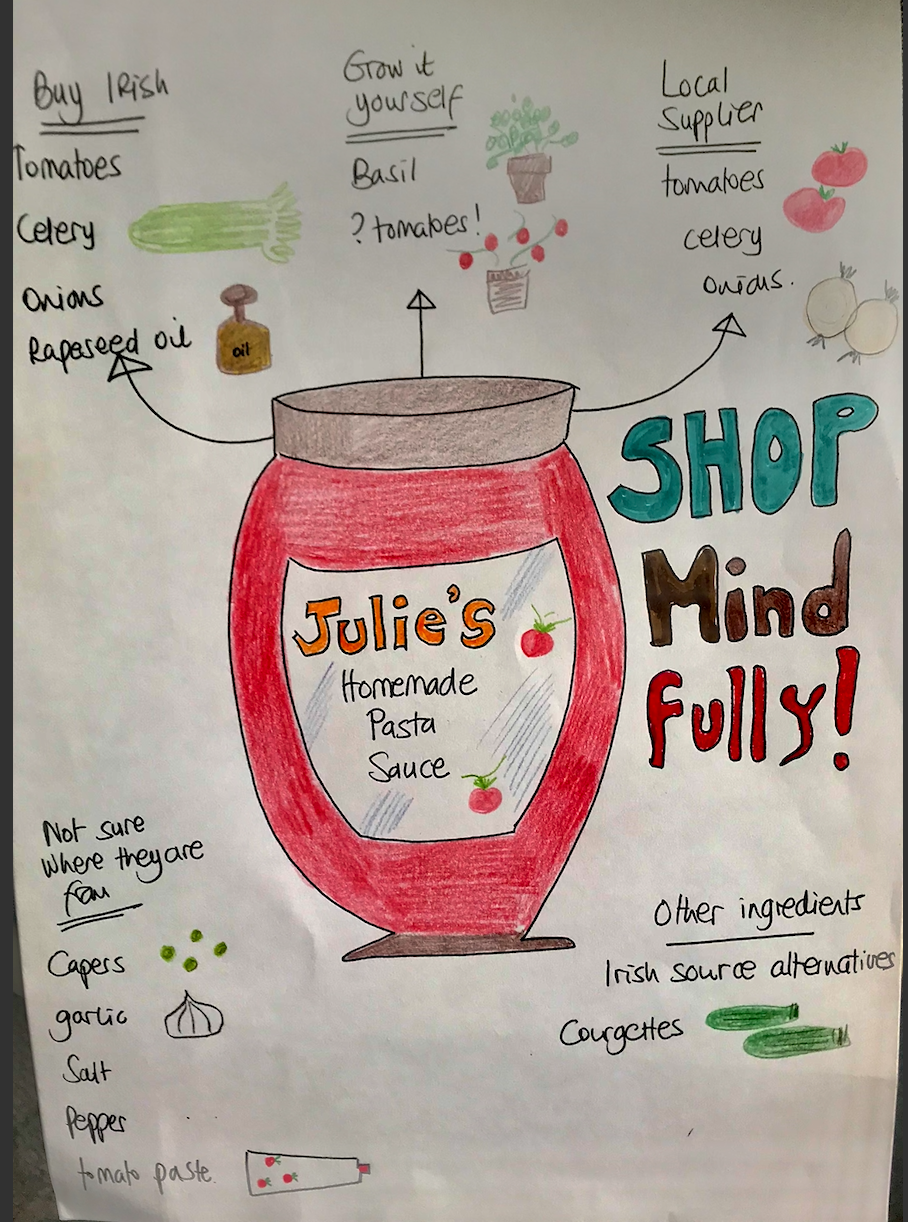 Buy Irish
Tomatoes
Celery
Onions
Rapeseed oil
oil
Grow it
yourself
Basil
? tomatoes!
Local
Supplier
tomatoes
celery
onions.
SHOP
Mind
fully!
Julie's
Homemade
Pasta
Sauce
Not sure
where they are
from
Capers
garlic
Salt
Pepper
tomato paste
Other ingredients
Irish source alternatives
Courgettes